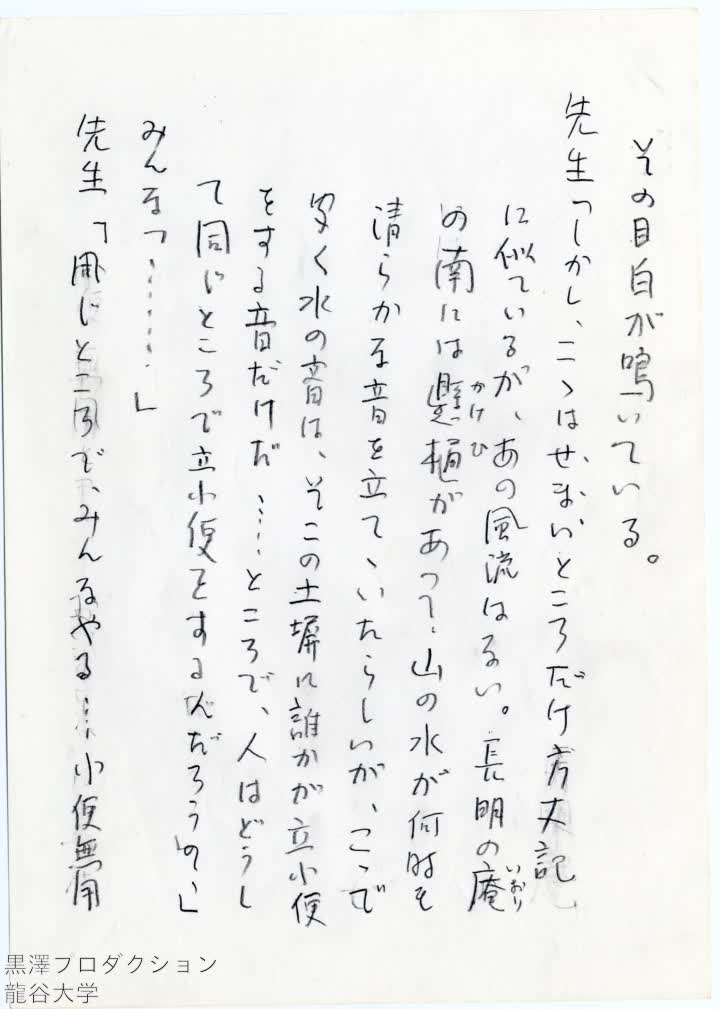 その目白が鳴いている。
先生「しかし、こゝはせまいところだけ方丈記
に似ているが、あの風流はない。長明の庵
いおり
の南には懸樋があって、山の水が何時も
かけひ
清らかな音を立てゝいたらしいが、こゝで
聞く水の音は、そこの土塀に誰かが立小便
をする音だけだ……ところで、人はどうし
て同じところで立小便をするんだろうの、」
みんな「……」
先生「同じところで、みんなやる…小便無用
黒澤プロダクション
龍谷大学